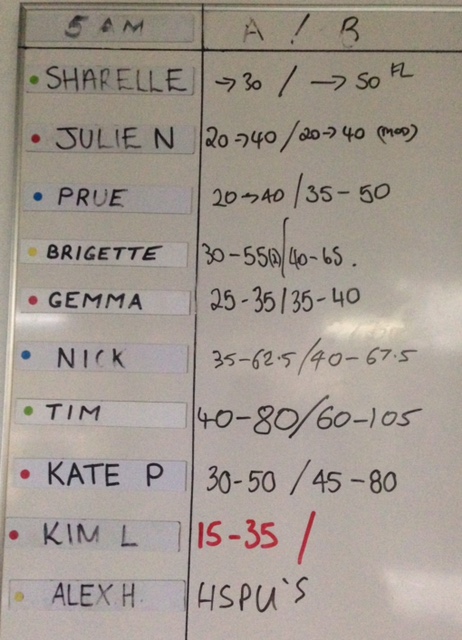 5 AM A / B
SHARELLE → 30 / → 50 FL
JULIE N 20 → 40 / 20 → 40 (MOD)
PRUE 20 → 40 / 35 - 50
BRIGETTE 30 - 55(2) / 40 - 65 .
GEMMA 25 - 35 / 35 - 40
NICK 35 - 62.5 / 40 - 67.5
TIM 40 - 80 / 60 - 105
KATE P 30 - 50 / 45 - 80
KIM L 15 - 35 /
ALEX H. HSPU'S